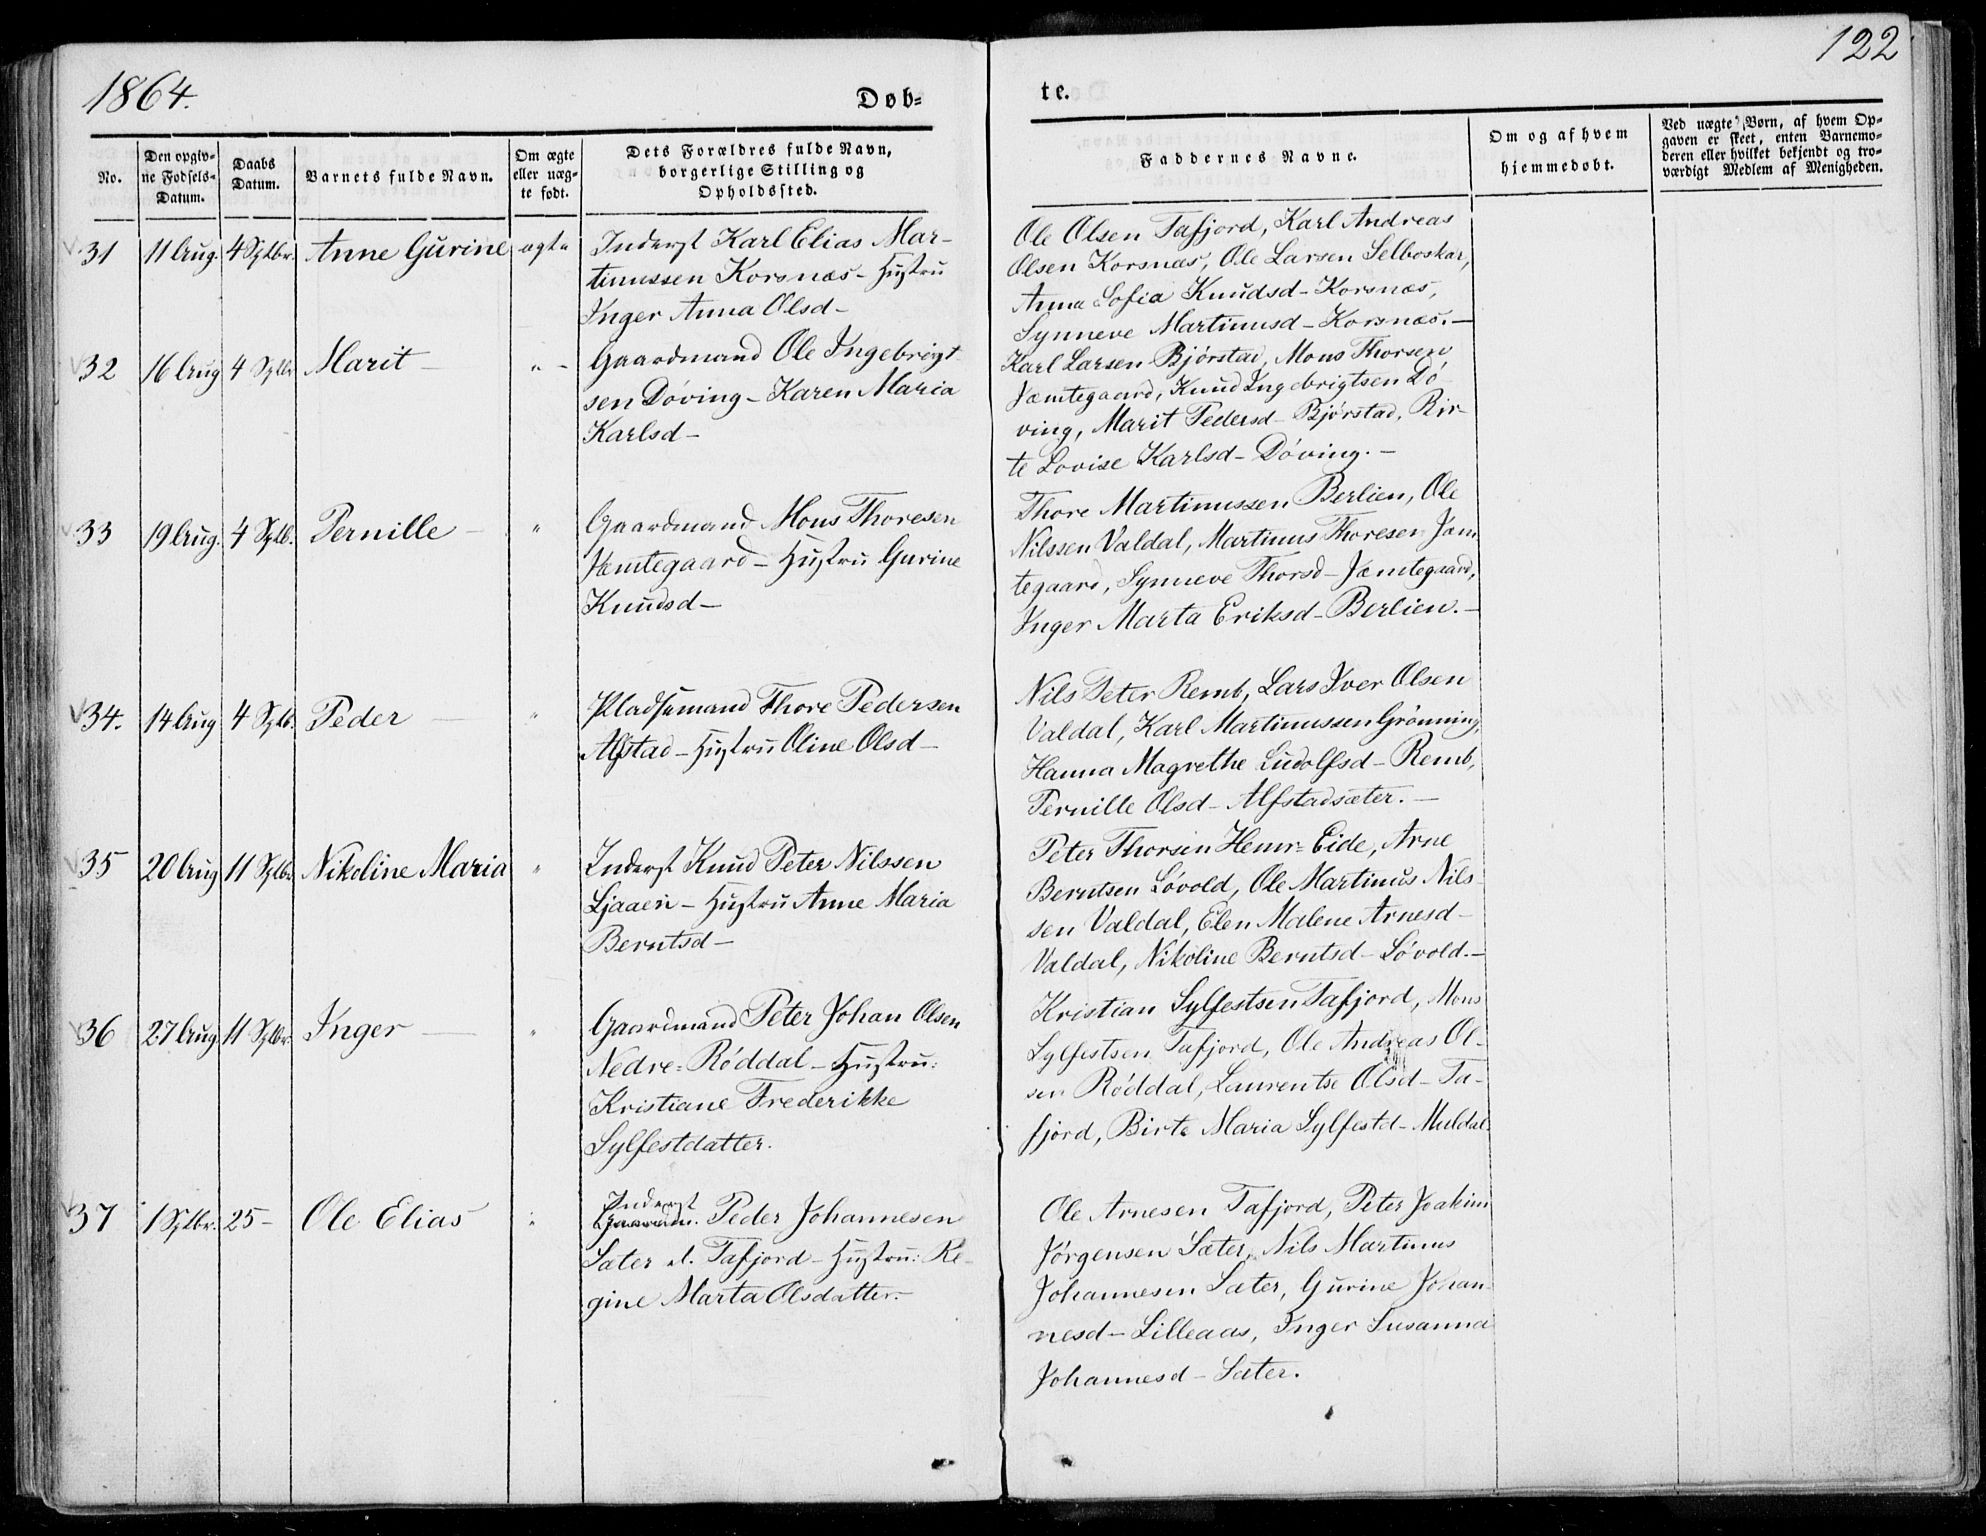 1864.
122
Døb=
te.
No.
Den opgiv-
ne Fødsels-
Datum.
Daabs
Datum.
Barnets fulde Navn.
Om ægte
eller uæg-
te født.
Dets Forældres fulde Navn,
borgerlige Stilling og
Opholdssted.
Faddernes Navne.
Om og af hvem
hjemmedøbt.
Ved uægte Børn, af hvem Op-
gaven er skeet, enten Barnemo-
deren eller hvilket bekjendt og tro-
værdigt Medlem af Menigheden.
31 11 Aug. 4 Septbr. Anne Gurine ægte
Inderst Karl Elias Mar-
tinussen Korsnæs - Hustru
Inger Anna Olsd -
Ole Olsen Tafjord, Karl Andreas
Olsen Korsnæs, Ole Larsen Selboskar,
Anna Sofia Knudsd - Korsnæs,
Synneve Martinusd - Korsnæs. -
32 16 Aug 4 Septbr Marit - " -
Gaardmand Ole Ingebrigt-
sen Døving - Karen Maria
Karlsd -
Karl Larsen Bjørstad, Mons Thorsen
Jemtegaard, Knud Ingebrigtsen Dø-
ving, Marit Pedersd - Bjørstad, Bir-
te Lovise Karlsd - Døving. -
33 19 Aug. 4 Septb. Pernille - "
Gaardmand Mons Thoresen
Jemtegaard - Hustru Gurine
Knudsd -
Thore Martinussen Berlien, Ole
Nilssen Valdal, Martinus Thoresen Jem
tegaard, Synneve Thorsd - Jemtegaard,
Inger Marta Eriksd - Berlien. -
34. 14 Aug 4 Septb. Peder - "
Pladsemand Thore Pedersen
Alfstad - Hustru Oline Olsd -
Nils Peter Remb, Lars Iver Olsen
Valdal, Karl Martinussen Grønning,
Hanna Magrethe Ludolfsd - Remb,
Pernille Olsd - Alfstadsæter. -
35 20 Aug 11 Septbr Nikoline Maria "
Inderst Knud Peter Nilssen
Ljaaen - Hustru Anne Maria
Berntsd -
Peter Thorsen Henr= Eide, Arne
Berntsen Løvold, Ole Martinus Nils-
sen Valdal, Elen Malene Arnesd -
Valdal, Nikoline Berntsd - Løvold. -
36 27 Aug 11 Septbr. Inger - "
Gaardmand Peter Johan Olsen
Nedre= Røddal - Hustru:
Kristiane Frederikke
Sylfestdatter.
Kristian Sylfestsen Tafjord, Mons
Sylfestsen Tafjord, Ole Andreas Ol-
sen Røddal, Laurentse Olsd - Ta-
fjord, Birte Maria Sylfestd - Muldal.
37 1 Septbr. 25 - Ole Elias "
Inderst
Gaardm. Peder Johannesen
Sæter el. Tafjord - Hustru: Re-
gine Marta Olsdatter. -
Ole Arnesen Tafjord, Peter Joakim
Jørgensen Sæter, Nils Martinus
Johannesen Sæter, Gurine Johan-
nesd - Lilleaas, Inger Susanna
Johannesd - Sæter.